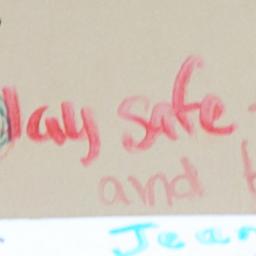 lay safe
and
Jean